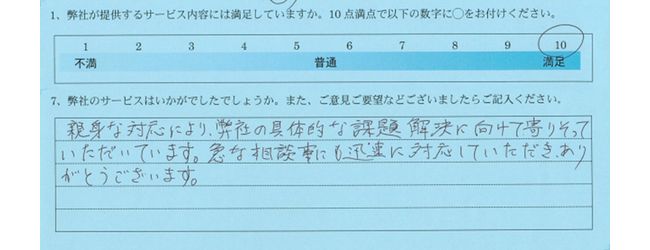 1、弊社が提供するサービス内容には満足していますか。10点満点で以下の数字に○をお付けください。
1 2 3 4 5 6 7 8 9 10
不満 普通 満足
7、弊社のサービスはいかがでしたでしょうか。また、ご意見ご要望などございましたらご記入ください。
親身な対応により、弊社の具体的な課題解決に向けて寄りそって
いただいています。急な相談事にも迅速に対応していただき、あり
がとうございます。